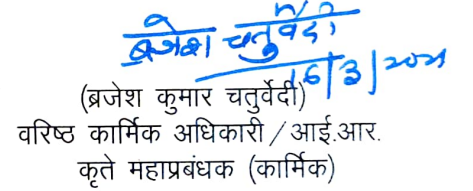 ब्रजेश चतुर्वेदी
16/3/2021
(ब्रजेश कुमार चतुर्वेदी)
वरिष्ठ कार्मिक अधिकारी / आई.आर.
कृते महाप्रबंधक (कार्मिक)